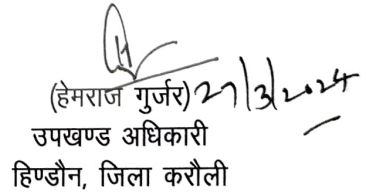 (हेमराज गुर्जर) 27/3/2024
उपखण्ड अधिकारी
हिण्डौन, जिला करौली